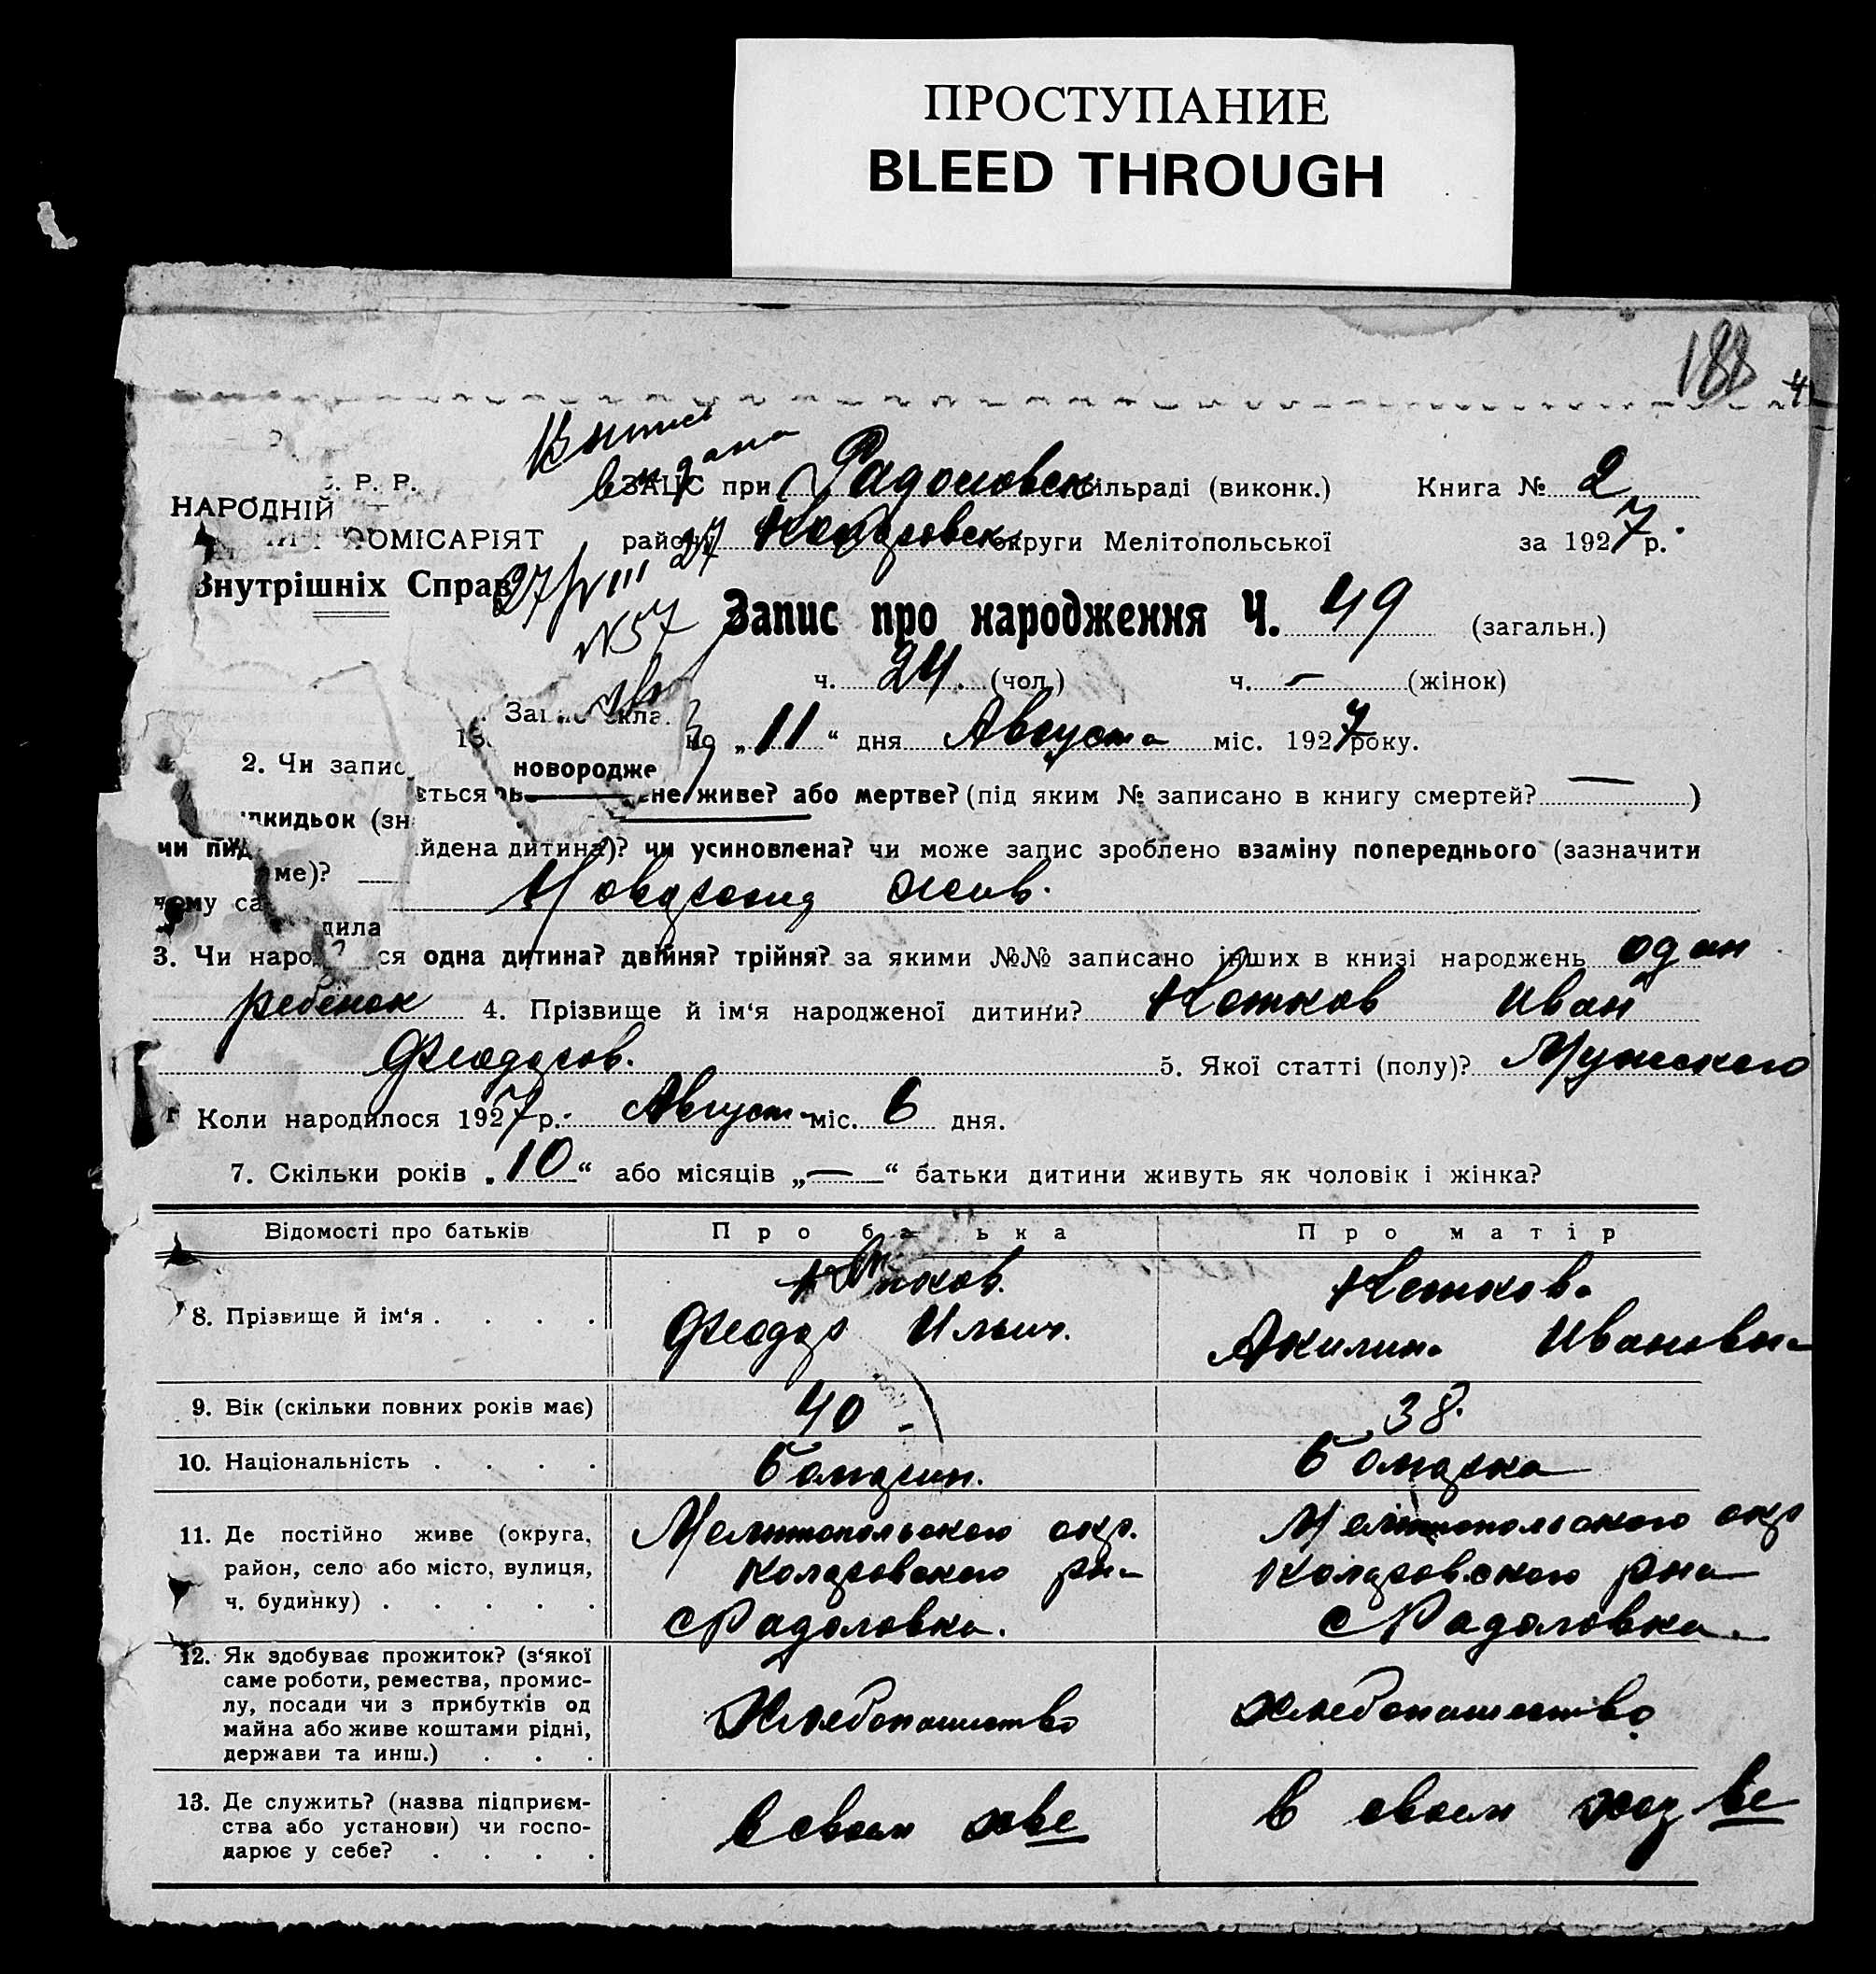 ПРОСТУПАНИЕ
BLEED THROUGH
188
Р. Р.
НАРОДНІЙ
КОМІСАРІЯТ
Внутрішніх Справ
Выпись
выдана
27/VIII 27
N57
ЗАЦС при Радоловск сільраді (виконк.) Книга № 2
району Коларовск округи Мелітопольської за 1927 р.
Запис про народження Ч. 49 (загальн.)
ч. 24 (чол.) ч. — (жінок)
Запис скла но „11“ дня Августа міс. 1927 року.
2. Чи запис ється новородже не живе? або мертве? (під яким № записано в книгу смертей? — )
чи підкидьок (знайдена дитина)? чи усиновлена? чи може запис зроблено взаміну попереднього (зазначити
чому саме)? Новорожд жив.
3. Чи народилася одна дитина? двійня? трійня? за якими №№ записано інших в книзі народжень один
ребенок 4. Прізвище й ім‘я народженої дитини? Кетков Иван
Феодоров. 5. Якої статті (полу)? Мужского
Коли народилося 1927 р. Август міс. 6 дня.
7. Скільки років „10“ або місяців „—“ батьки дитини живуть як чоловік і жінка?
Відомості про батьків Про батька Про матір
8. Прізвище й ім‘я . . . . Кетков. Феодор Ильич. Кеткова Акилина Ивановна
9. Вік (скільки повних років має) 40 38.
10. Національність . . . . Болгарин. Болгарка
11. Де постійно живе (округа, район, село або місто, вулиця, ч. будинку) . . . . . Мелитопольского окр. Коларовского рна с Радоловка. Мелитопольского окр Коларовского рна с Радоловка.
12. Як здобуває прожиток? (з‘якої саме роботи, ремества, промис-лу, посади чи з прибутків од майна або живе коштами рідні, держави та инш.) . . . Хлебопашество Хлебопашество
13. Де служить? (назва підприєм-ства або установи) чи госпо-дарює у себе? . . . . В своем хве В своем хозве